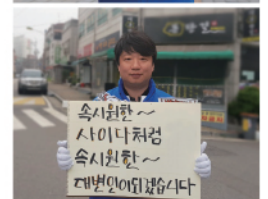 속시원한~
사이다처럼
속시원한~
대변인이되겠습니다